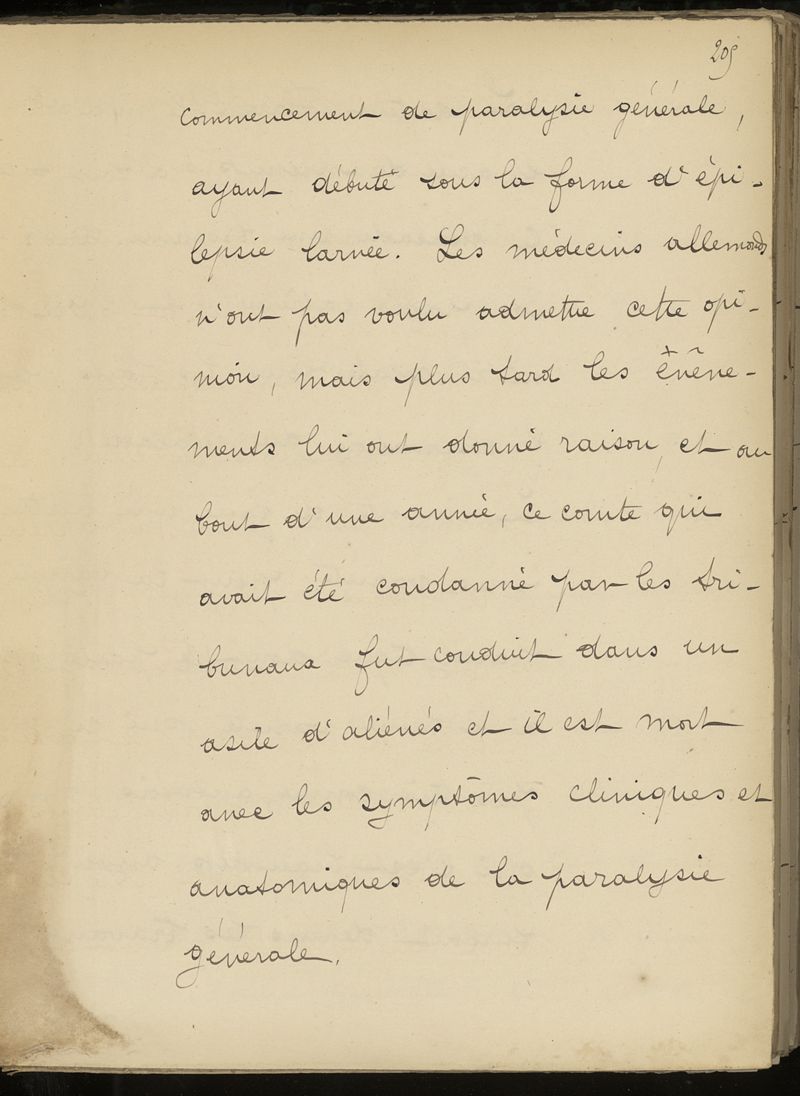 205
commencement de paralysie générale,
ayant débuté sous la forme d'épi-
lepsie larvée. Les médecins allemands
n'ont pas voulu admettre cette opi-
nion, mais plus tard les évène-
ments lui ont donné raison, et au
bout d'une année, ce comte qui
avait été condanné par les tri-
bunaux fut conduit dans un
asile d'aliénés et il est mort
avec les symptômes cliniques et
anatomiques de la paralysie
générale.